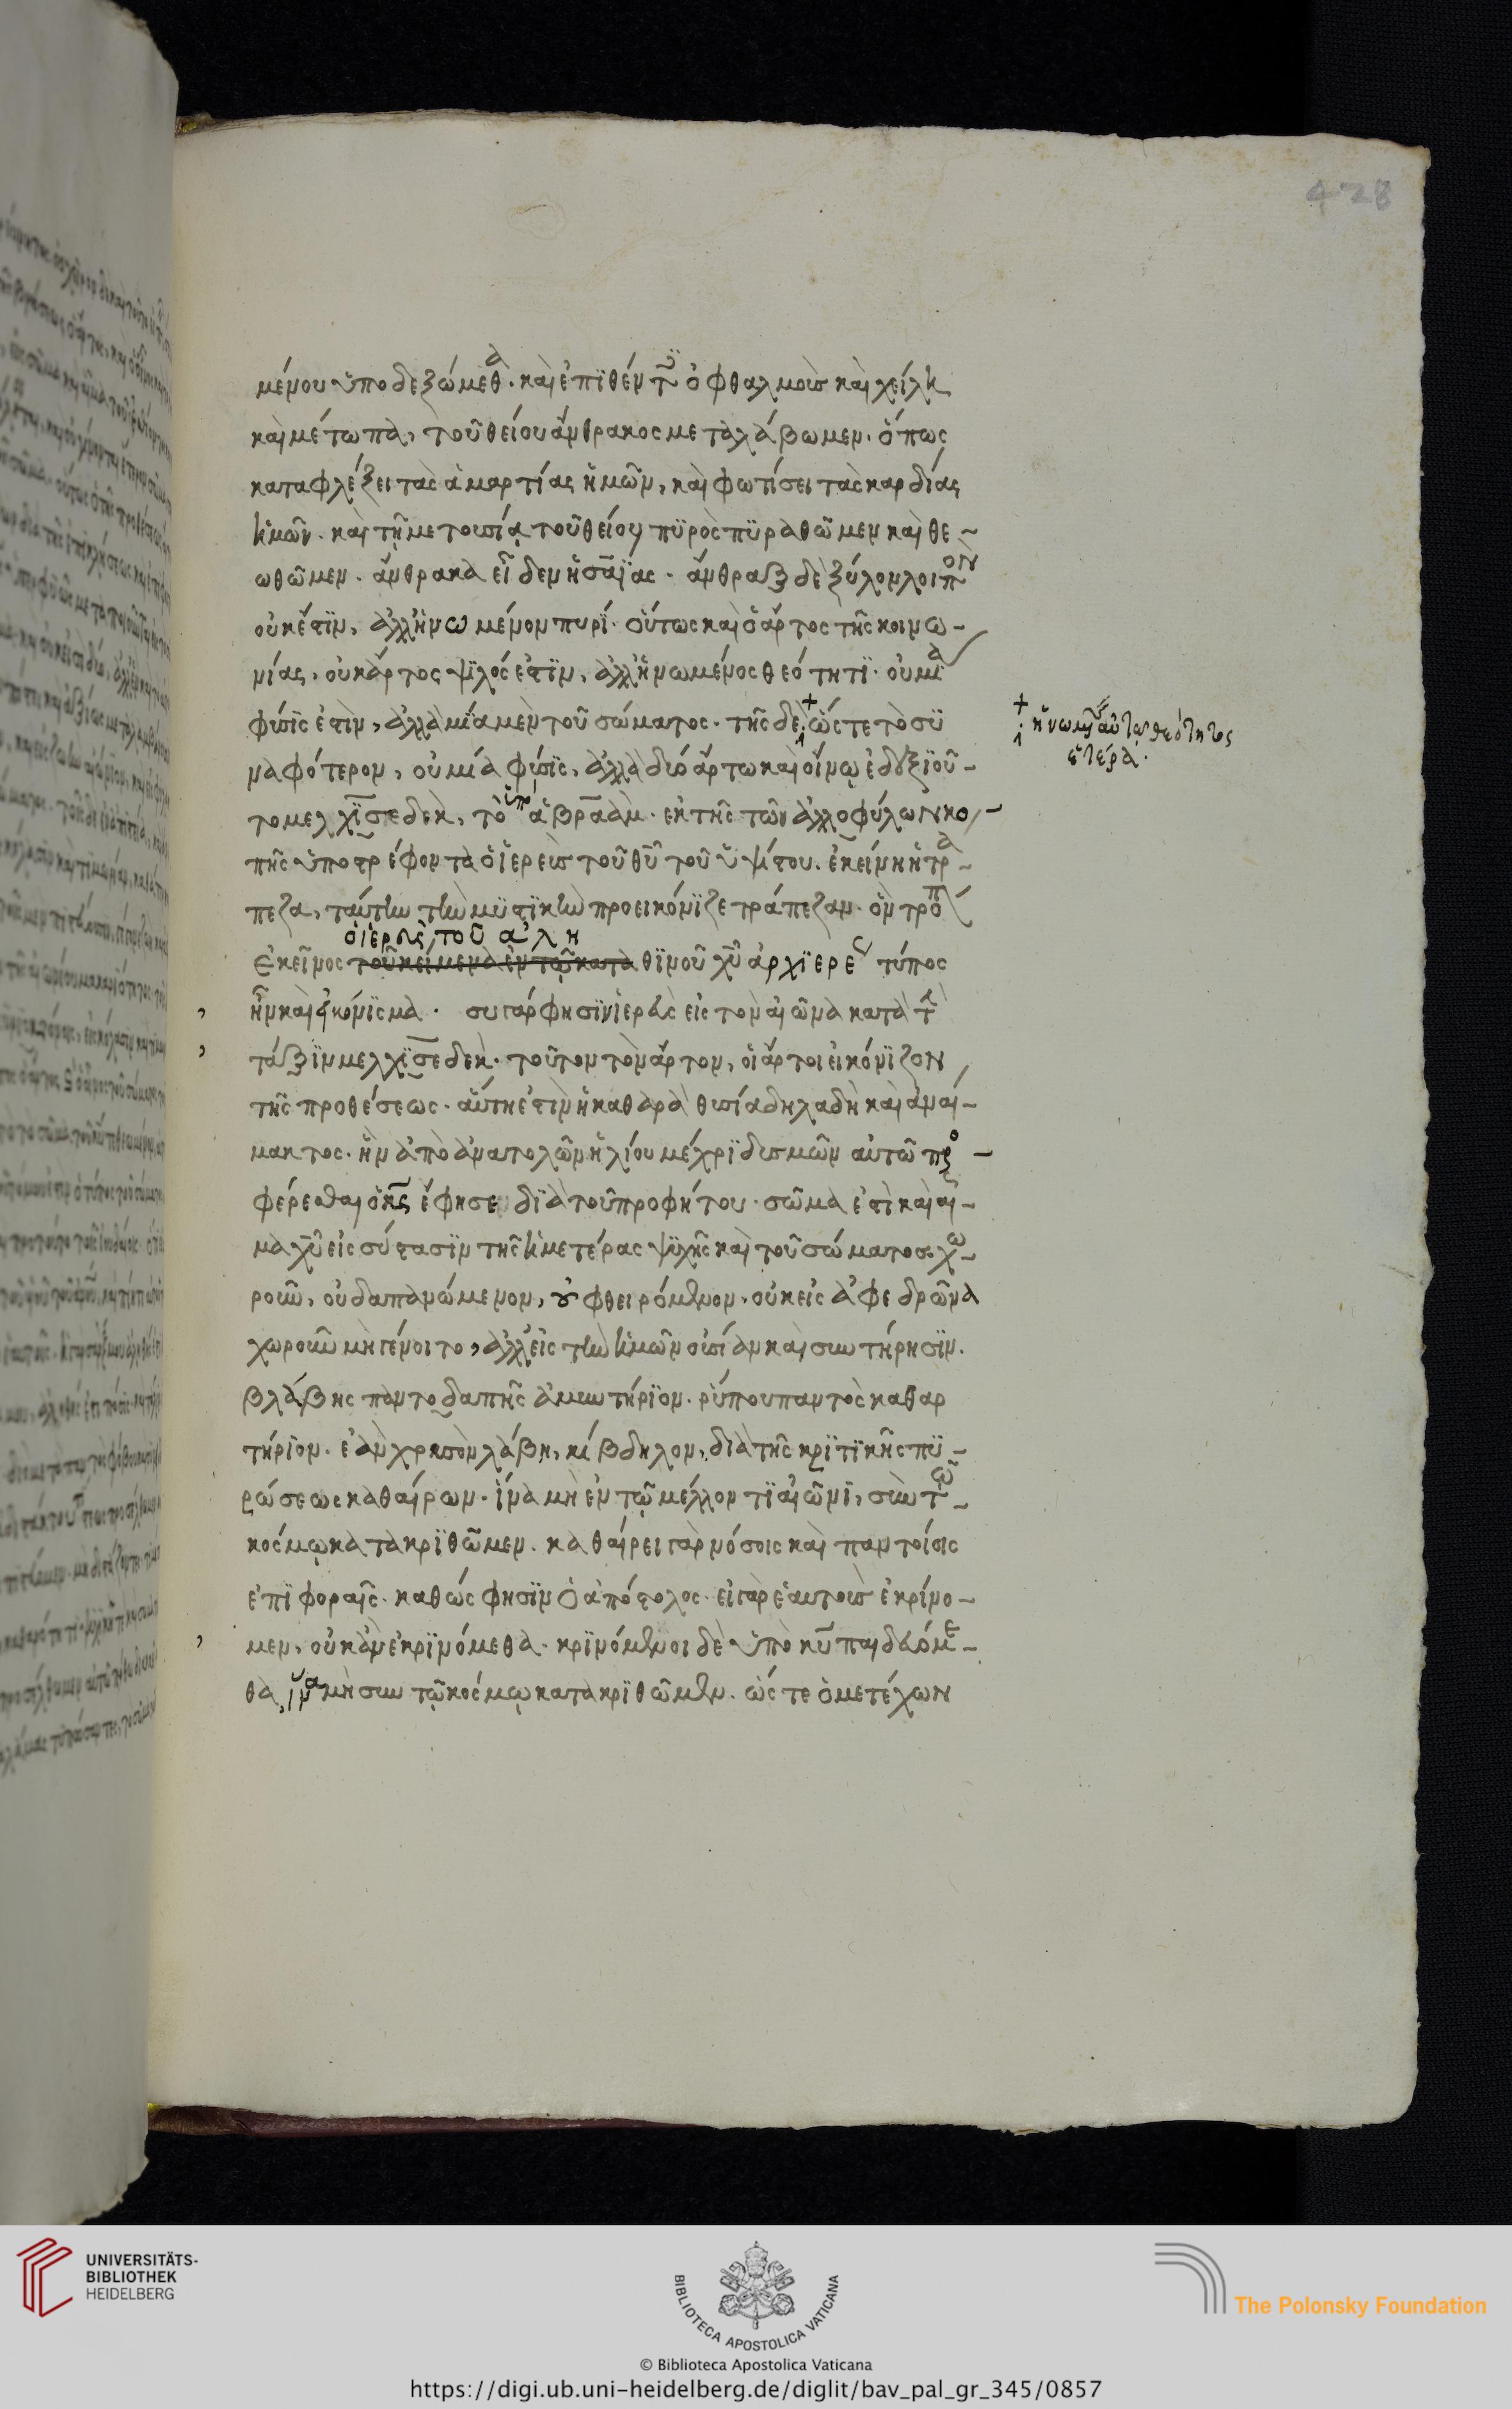 428
μένου ὑποδεξώμεθα. καὶ ἐπϊθέντες ὀφθαλμοὺς καὶ χείλη
καὶ μέτωπα, τοῦ θείου ἄνθρακος μεταλάβωμεν. ὅπως
καταφλέξει τὰς ἁμαρτίας ἡμῶν, καὶ φωτίσει τὰς καρδίας
ἡμῶν. καὶ τῇ μετουσίᾳ τοῦ θείου πϋρὸς πϋραθῶμεν καὶ θε-
ωθῶμεν. ἄνθρακα εἶδεν ἡσαΐας. ἄνθραξ δὲ ξύλον λοιπὸν
οὐκ ἔστϊν, ἀλλ' ἡνωμένον πυρί. οὕτως καὶ ὁ ἄρτος τῆς κοινω-
νίας, οὐκ ἄρτος ψϊλός ἐστϊν, ἀλλ' ἡνωμένος θεότητϊ. οὐ μία
φύσϊς ἐστὶν, ἀλλὰ μία μὲν τοῦ σώματος. τῆς δὲ ὥστε τὸ σϋ
ναφότερον, οὐ μία φύσϊς, ἀλλὰ δύο ἄρτω καὶ οἴνῳ ἐδεξϊοῦ-
το μελχϊσεδὲκ, τὸν ἀβραὰμ. ἐκ τῆς τῶν ἀλλοφύλων κο-
πῆς ὑποστρέφοντα ὁ ἱερεὺς τοῦ θυ τοῦ ὑψίστου. ἐκείνη ἡ τρά-
πεζα, ταύτην τὴν μϋστϊκὴν προεικόνϊζε τράπεζαν. ὃν τρόπον
ὁ ἱερεὺς, τοῦ ἀλη
Ἐκεῖνος τοῦ κείμενα ἐν τῷ κατα θϊνοῦ χυ ἀρχϊερέως τύπος
ἦν καὶ εἰκόνϊσμα. συ γάρ φησϊν ἱερεὺς εἰς τὸν αἰῶνα κατὰ τὴν
τάξϊν μελχϊσεδέκ. τοῦτον τὸν ἄρτον, οἱ ἄρτοι εἰκόνϊζον
τῆς προθέσεως. αὕτη ἐστὶν ἡ καθαρὰ θυσία δηλαδὴ καὶ ἀναί-
μακτος. ἣν ἀπὸ ἀνατολῶν ἡλίου μέχρϊ δυσμῶν αὐτῶ προσ-
φέρεσθαι ὁ κς ἔφησε δϊὰ τοῦ προφήτου. σῶμα ἐστὶ καὶ αἷ-
μα χυ εἰς σύστασϊν τῆς ἡμετέρας ψϋχῆς καὶ τοῦ σώματος. χω-
ροῦν, οὐ δαπανώμενον, οὐ φθειρόμενον, οὐκ εἰς ἀφεδρῶνα
χωροῦν μὴ γένοιτο, ἀλλ' εἰς τὴν ἡμῶν οὐσίαν καὶ συντήρησϊν.
βλάβης παντοδαπῆς ἀμυντήρϊον. ρύπου παντὸς καθαρ
τήρϊον. ἐὰν χρυσὸν λάβη, κίβδηλον, διὰ τῆς κρϊτϊκῆς πϋ-
ρώσεως καθαίρων. ἵνα μὴ ἐν τῷ μέλλοντϊ αἰῶνϊ, σὺν τῶ
κόσμῳ κατακρϊθῶμεν. καθαίρει γὰρ νόσοις καὶ παντοίοις
ἐπϊφοραῖς. καθώς φησϊν ὁ ἀπόστολος. εἰ γὰρ ἑαυτοὺς ἐκρίνο-
μεν, οὐκ ἂν ἐκρϊνόμεθα. κρϊνόμενοι δὲ ὑπὸ κυ παιδευόμε-
θα, ἵνα μὴ σὺν τῷ κόσμῳ κατακρϊθῶμεν. ὥστε ὁ μετέχων
ἡνωμένης αὐτῷ θεότητος
ἑτέρα.
UNIVERSITÄTS-
BIBLIOTHEK
HEIDELBERG
BIBLIOTECA APOSTOLICA VATICANA
The Polonsky Foundation
© Biblioteca Apostolica Vaticana
https://digi.ub.uni-heidelberg.de/diglit/bav_pal_gr_345/0857